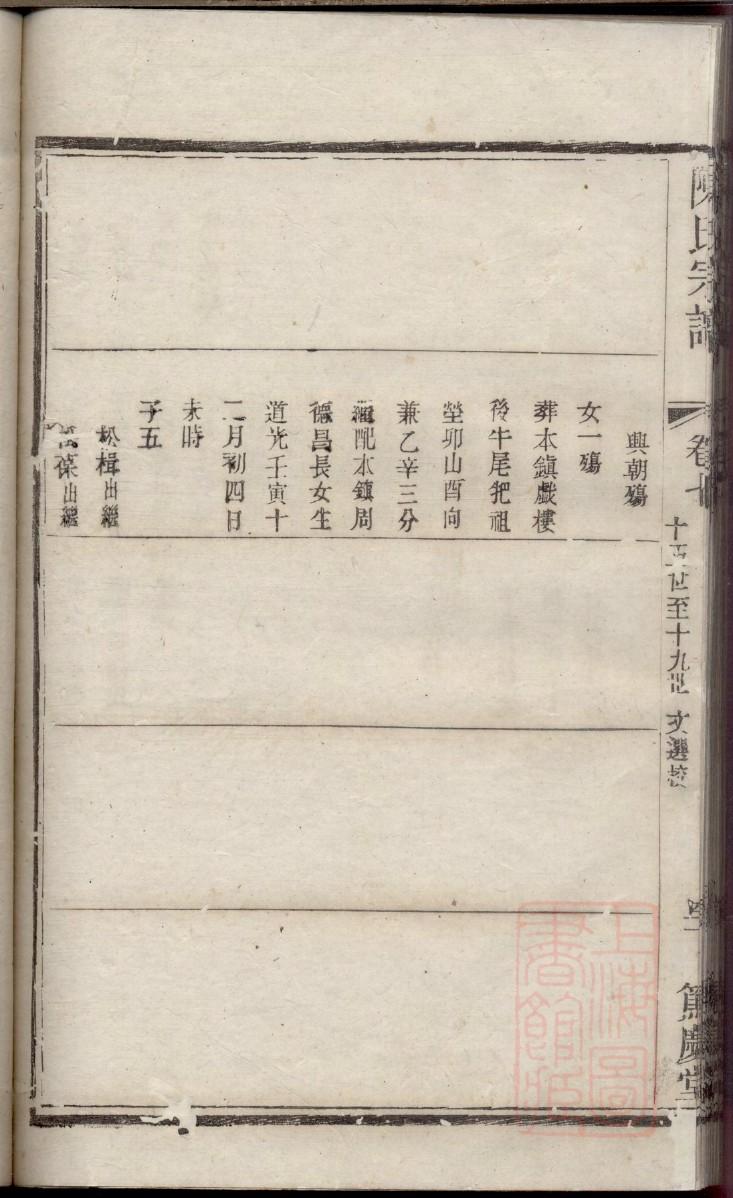 陳氏宗譜
卷七
十五世至十九世 文選校
篤慶堂
興朝殤
女一殤
葬本鎮戲樓
後牛尾把祖
塋卯山酉向
兼乙辛三分
繼配本鎮周
德昌長女生
道光壬寅十
二月初四日
未時
子五
松楫出繼
葆出繼
上海圖
書館藏